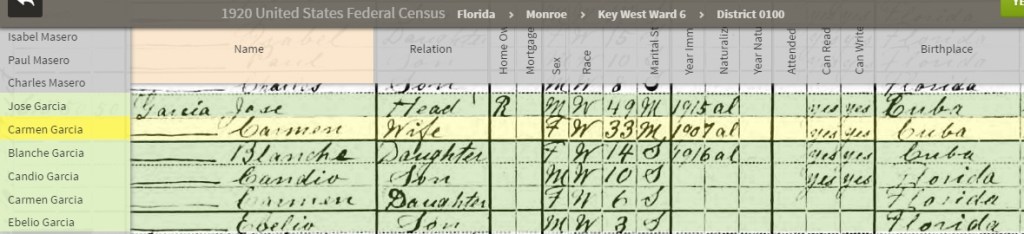 1920 United States Federal Census Florida > Monroe > Key West Ward 6 > District 0100
YE
Name Relation Home Ow Mortgage Sex Race Marital St Year Imm Naturaliz Year Natu Attended Can Read Can Write Birthplace
Isabel Masero
Paul Masero
Charles Masero Charles Son M W Florida
Jose Garcia Garcia Jose Head R M W 49 M 1915 al yes yes Cuba
Carmen Garcia Carmen Wife F W 33 M 1907 al yes yes Cuba
Blanche Garcia Blanche Daughter F W 14 S 1916 al yes yes Cuba
Candio Garcia Candio Son M W 10 S yes yes Florida
Carmen Garcia Carmen Daughter F W 6 S Florida
Ebelio Garcia Ebelio Son M W 3 S Florida